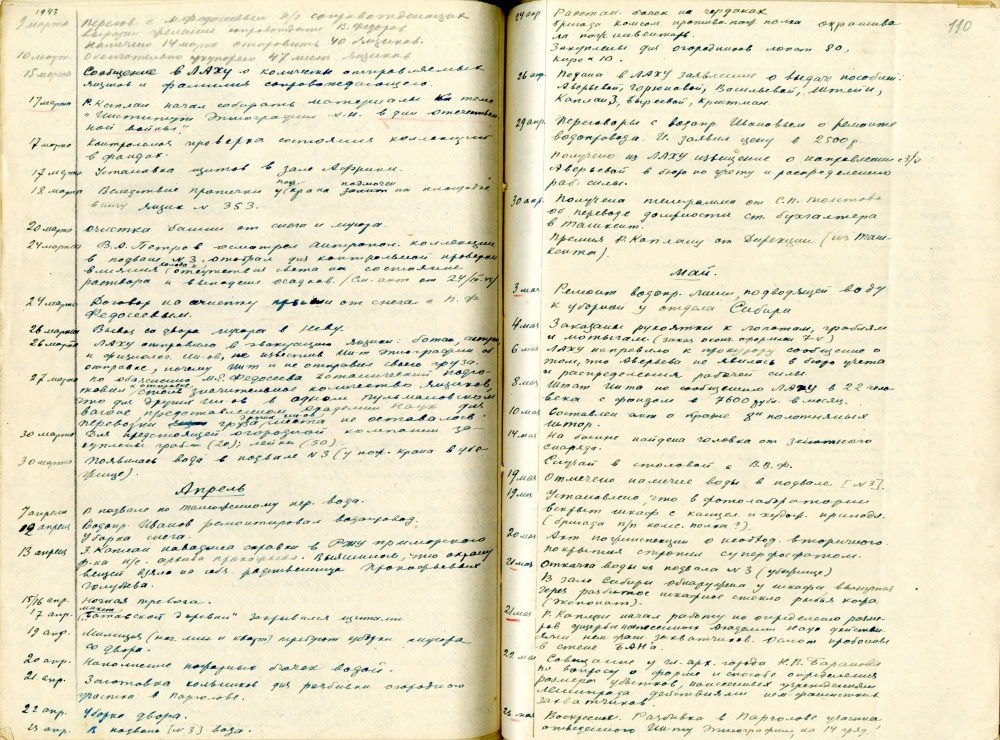 1943
9 марта Перегов. с М. Федосеевым н/г сопровождающих
В. Федоров
Намечено 14 марта отправить 40 ящиков.
10 марта Окончательно укупорено 47 мест ящиков
15 марта Сообщение в ЛАХУ о количестве отправляемых
ящиков и фамилия сопровождающего.
17 марта Р. Каплан начал собирать материалы на тему
"Институт Этнографии А.Н. в дни отечествен-
ной войны".
7 марта Контрольная проверка состояния коллекций
в фондах.
17 марта Установка щитов в зале Африки.
18 марта Вследствие протечки у пож. крана подмочен на площадке
внизу ящик N 353.
20 марта Очистка башни от снега и мусора.
24 марта В.О. Петров осмотрел антропол. коллекции
в подвале N 3. Отобрал для контрольной проверки
влияния холода и отсутствия света на состояние
раствора и выпадение осадков. (См. акт от 24/III-43)
24 марта Договор на очистку крыши от снега с П. Ф
Федосеевым.
26 марта Вывоз со двора мусора в Неву.
26 марта ЛАХУ отправило в эвакуацию ящики: ботан,
и физиолог. ин-ов, не известив Ин-т Этнографии об
отправке, почему Ин-т и не отправил своего груза.
27 марта По объяснению М.Я. Федосеева Ботанический подго-
товил к отправке столь значительное количество ящиков,
что для других ин-ов в одном пульмановском
вагоне предоставленном Академии Наук для
перевозки груза места не оставалось.
30 марта Для предстоящей огородной компании за-
куплены грабли (20); лейки (30).
30 марта Появилась вода в подвале N 3 (у пож. крана в убе-
жище).
Апрель
7 апреля В подвале по-таможенному пер. вода.
12 апреля Водопр. Иванов ремонтировал водопровод.
Уборка снега.
13 апреля З. Каплан наводила справки в РЖУ приморского
р-на н/г. архива Прокофьева. Выяснилось, что охрану
вещей взяла на себя родственница Прокофьевых
Голубева.
15/16 апр. Ночная тревога.
17 апр. Макет "Батакской деревни" закрывался щитами
19 апр. Милиция (нач. мил и квот) требуют уборки мусора
со двора.
20 апр. Наполнение пожарных бочек водой.
21 апр. Заготовка колышков для разбивки огородного
участка в Парголове.
22 апр. Уборка двора.
23 апр. В подвале [N 3] вода.
110
24 апр Расстан. бочек на чердаках
Бригада комсом противо. пож. полка охранива
ла пож. инвентарь.
Закуплены для огородников лопат 80,
кирок 10.
26 апр. Подана в ЛАХУ заявление о выдаче пособий:
Аверьевой, Горюновой, Васильевой, Штейн,
Каплан З, Выреевой, Критман.
29 апр. Переговоры с водопр Ивановым о ремонте
водопровода. И. заявил цену в 2500 р.
Получено из ЛАХУ извещение о направлении с 3/V
Аверьевой в бюро по учету и распределению
раб. силы.
30 апр. Получена телеграмма от С.П. Толстова
об переводе должности ст. бухгалтера
в Ташкент.
Премия Р. Каплану от Дирекции (из Таш-
кента).
Май.
3 мая Ремонт водопр. линии, подводящей воду
к уборной у отдела Сибири
4 мая Заказаны рукоятки к лопатам, граблям
и мотыгам. (заказ оконч. оформлен 7-V)
6 мая ЛАХУ направило к прокурору сообщение о
том, что Аверьева не явилась в бюро учета
и распределения рабочей силы.
8 мая Штат Ин-та по сообщению ЛАХУ в 22 чело
века с фондом в 7600 руб. в месяц.
10 мая Составлен акт о краже 8 полотняных
штор.
14 мая На башне найдена головка от зенитного
снаряда.
Случай в столовой с В.В.Ф.
19 мая Отмечено наличие воды в подвале [N 3].
19 мая Установлено, что в фотолаборатории
вскрыт шкаф с канцел. и худож. принадл.
(бригада п/п комс. полка?)
20 мая Акт пожинспекции о необход. вторичного
покрытия стропил суперфосфатом.
21 мая Откачка воды из подвала N 3 (убежище)
В зале Сибири обнаружена у шкафа вынутая
через разбитое шкафное стекло рыбья кожа
(экспонат).
21 мая Р. Каплан начал работу по определению разме-
ров ущерба нанесенного Академии Наук действи-
ями нем. фаш. захватчиков. Осмотр пробоины
в стене БАНа.
22 мая Совещание у гл. арх. города Н.В. Баранова
по вопросу о форме и способе определения
размера убытков, нанесенных учреждениям
Ленинграда действиями нем. фашистских
захватчиков.
23 мая Воскресник. Разбивка в Парголове участка
отведенного Ин-ту Этнографии, на 14 гряд.